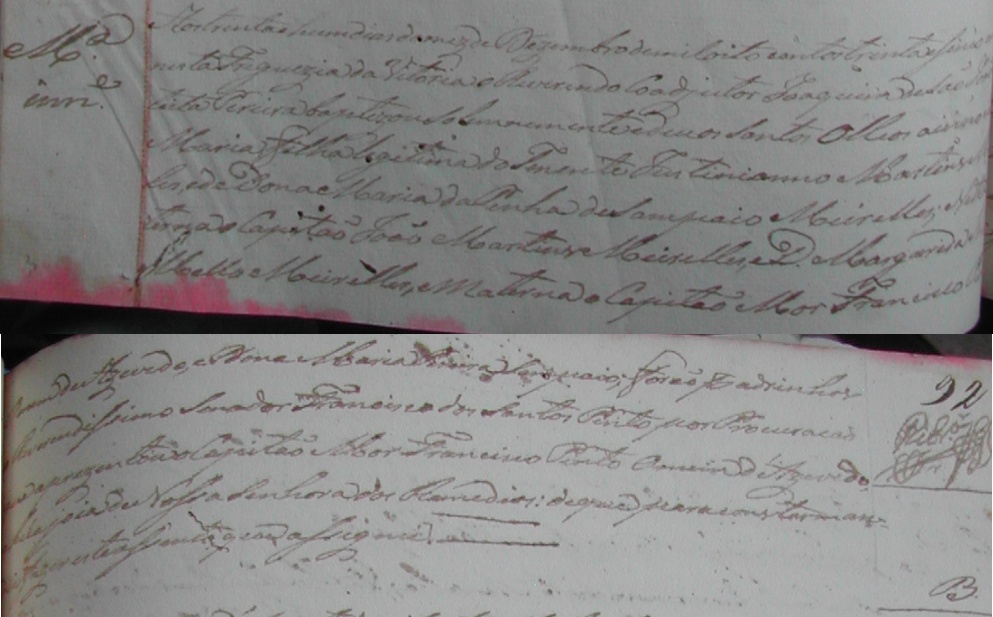 M.ª
inn.e
Aos trinta e hum dias do mez de Dezembro de mil oito centos trinta e
nesta Freguezia da Vitoria o Reverendo Coadjutor Joaquim de
Pereira baptizou solemnemente e deu os Santos Oleos a
Maria, filha legitima do Tenente Justinianno Martins
les, e de Dona Maria da Penha de Sampaio Meirelles, Netta
terna o Capitaõ Joaõ Martins Meirelles, e D. Margarida
Mello Meirelles, e Materna o Capitaõ Mor Francisco
de Azevedo, e Dona Maria Pereira foraõ Padrinhos
Reverendissimo Senador Francisco dos Santos Pinto por Procuraçaõ
aprezentou o Capitaõ Mor Francisco Pinto Correira de Azevedo,
e a joia de Nossa Senhora dos Remedios: de que para constar man-
este assento, que assignei.
92
B.